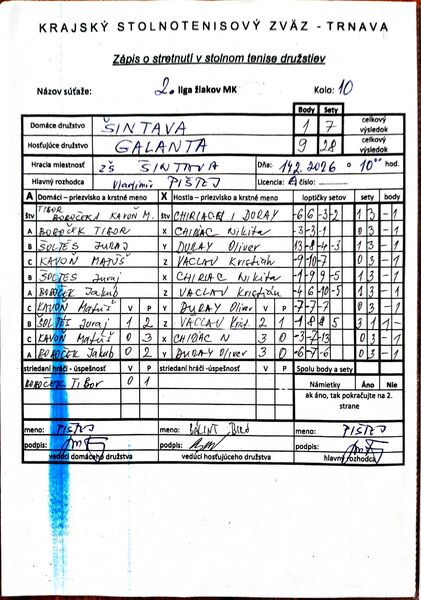 KRAJSKÝ STOLNOTENISOVÝ ZVÄZ - TRNAVA
Zápis o stretnutí v stolnom tenise družstiev
Názov súťaže: 2. liga žiakov MK Kolo: 10
Body Sety
Domáce družstvo ŠINTAVA 1 7 celkový výsledok
Hosťujúce družstvo GALANTA 9 28 celkový výsledok
Hracia miestnosť ZŠ ŠINTAVA Dňa: 14.2.2026 o 10 00 hod.
Hlavný rozhodca Vladimír PIŠTEJ Licencia: A číslo:
A Domáci – priezvisko a krstné meno X Hostia – priezvisko a krstné meno loptičky setov sety body
štv TIBOR BOROČEK A KAVOŇ M. štv CHIRIAC N I DURAY -6 6 -3 -2 1 3 - 1
A BOROČEK TIBOR X CHIRIAC Nikita -3 -3 -1 0 3 - 1
B ŠOLTÉS JURAJ Y DURAY Oliver 13 -8 -4 -3 1 3 - 1
C KAVOŇ MATÚŠ Z VACLAV Kristián -9 -10 -7 0 3 - 1
B ŠOLTÉS Juraj X CHIRIAC Nikita -1 -9 9 -5 1 3 - 1
A BOROČEK Jakub Z VACLAV Kristián -4 6 -10 -5 1 3 - 1
C KAVOŇ Matúš V P Y DURAY Oliver V P -7 -7 -7 0 3 - 1
B ŠOLTÉS Juraj 1 2 Z VACLAV Krist. 2 1 -1 8 8 5 3 1 1 -
C KAVOŇ Matúš 0 3 X CHIRIAC N 3 0 -3 -7 -13 0 3 - 1
A BOROČEK Jakub 0 2 Y DURAY Oliver 3 0 -6 -7 -6 0 3 - 1
striedaní hráči - úspešnosť V P striedaní hráči - úspešnosť V P Spolu body a sety
BOROČEK TIBOR 0 1
Námietky Áno Nie
ak áno, tak pokračujte na 2. strane
meno: PIŠTEJ meno: BÁLINT meno: PIŠTEJ
podpis: podpis: podpis:
vedúci domáceho družstva vedúci hosťujúceho družstva hlavný rozhodca